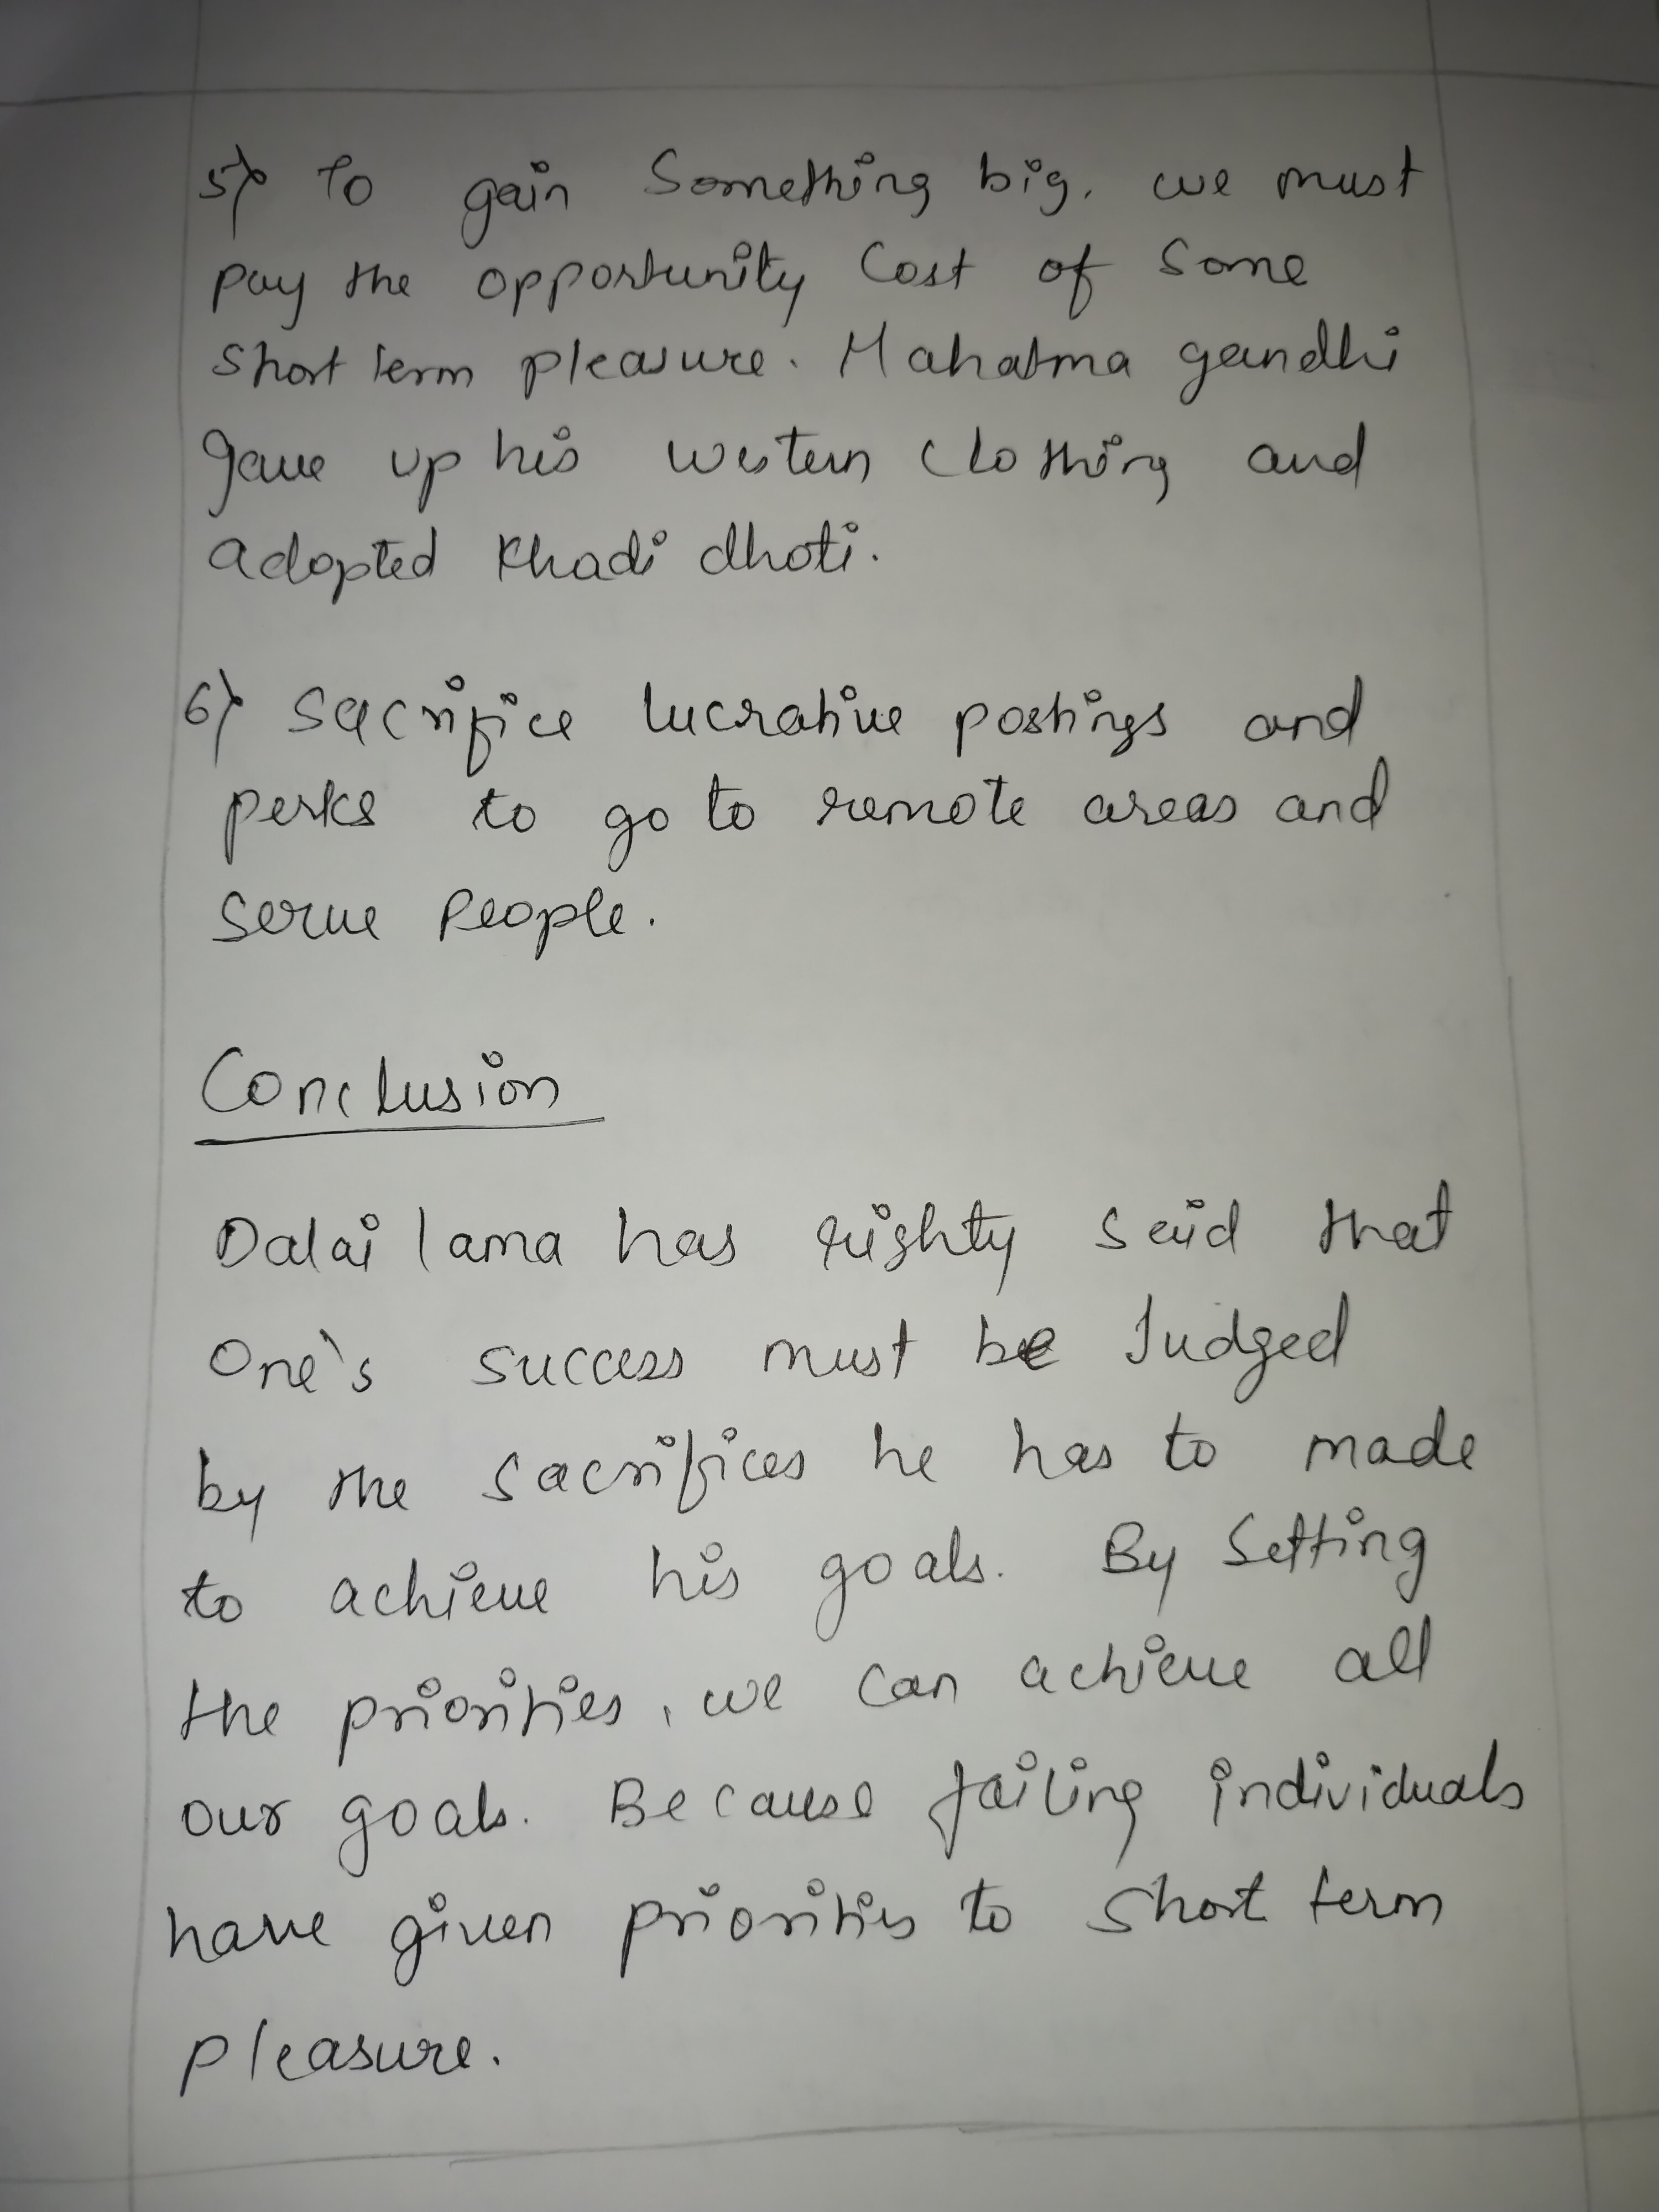 5) To gain Something big, we must
pay the opportunity Cost of Some
Short term pleasure. Mahatma gandhi
gave up his western clothing and
adopted Khadi dhoti.
6) Sacrifice lucrative postings and
perks to go to remote areas and
serve People.
Conclusion
Dalai lama has righty said that
One's success must be Judged
by the sacrifices he has to made
to achieve his goals. By Setting
the priorities, we can achieve all
our goals. Because failing individuals
have given priorities to short term
pleasure.